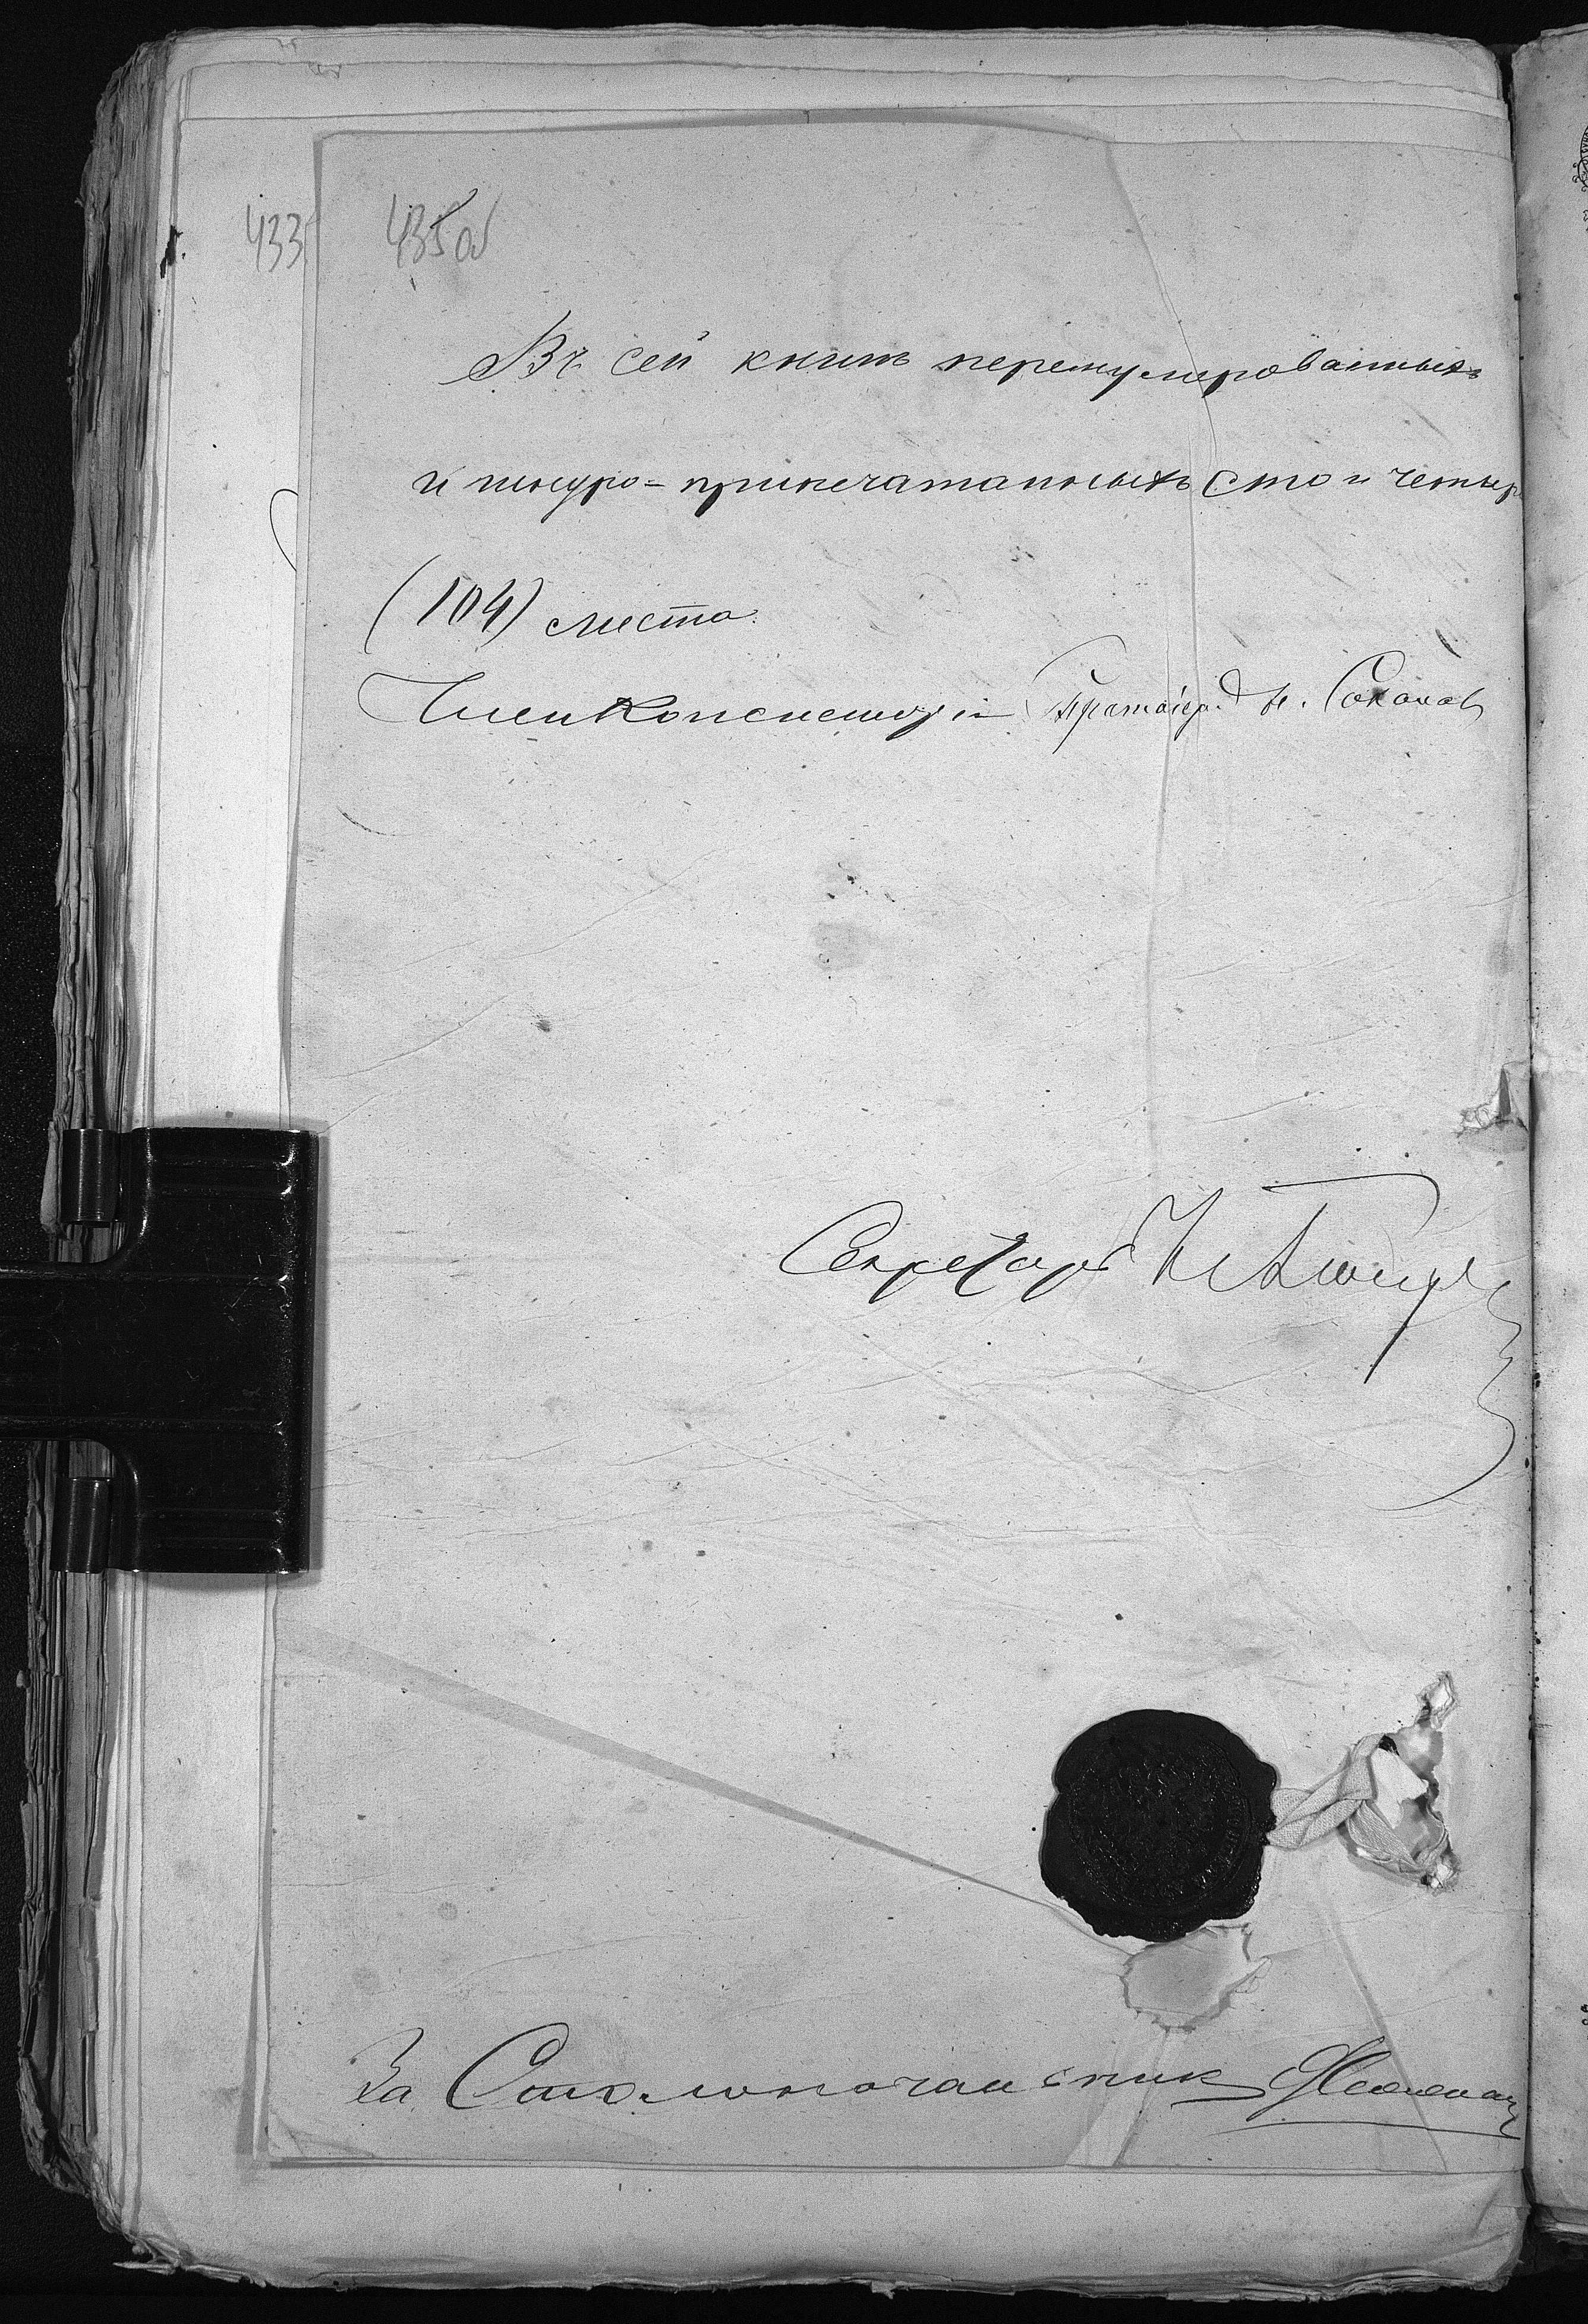 433
435об
Въ сей книгѣ перенумерованныхъ
и шнуро-припечатанныхъ сто и четыре
(104) листа.
Член Консисторіи Протоіерей Н. Соколов
Секретарь
За Столоначальник